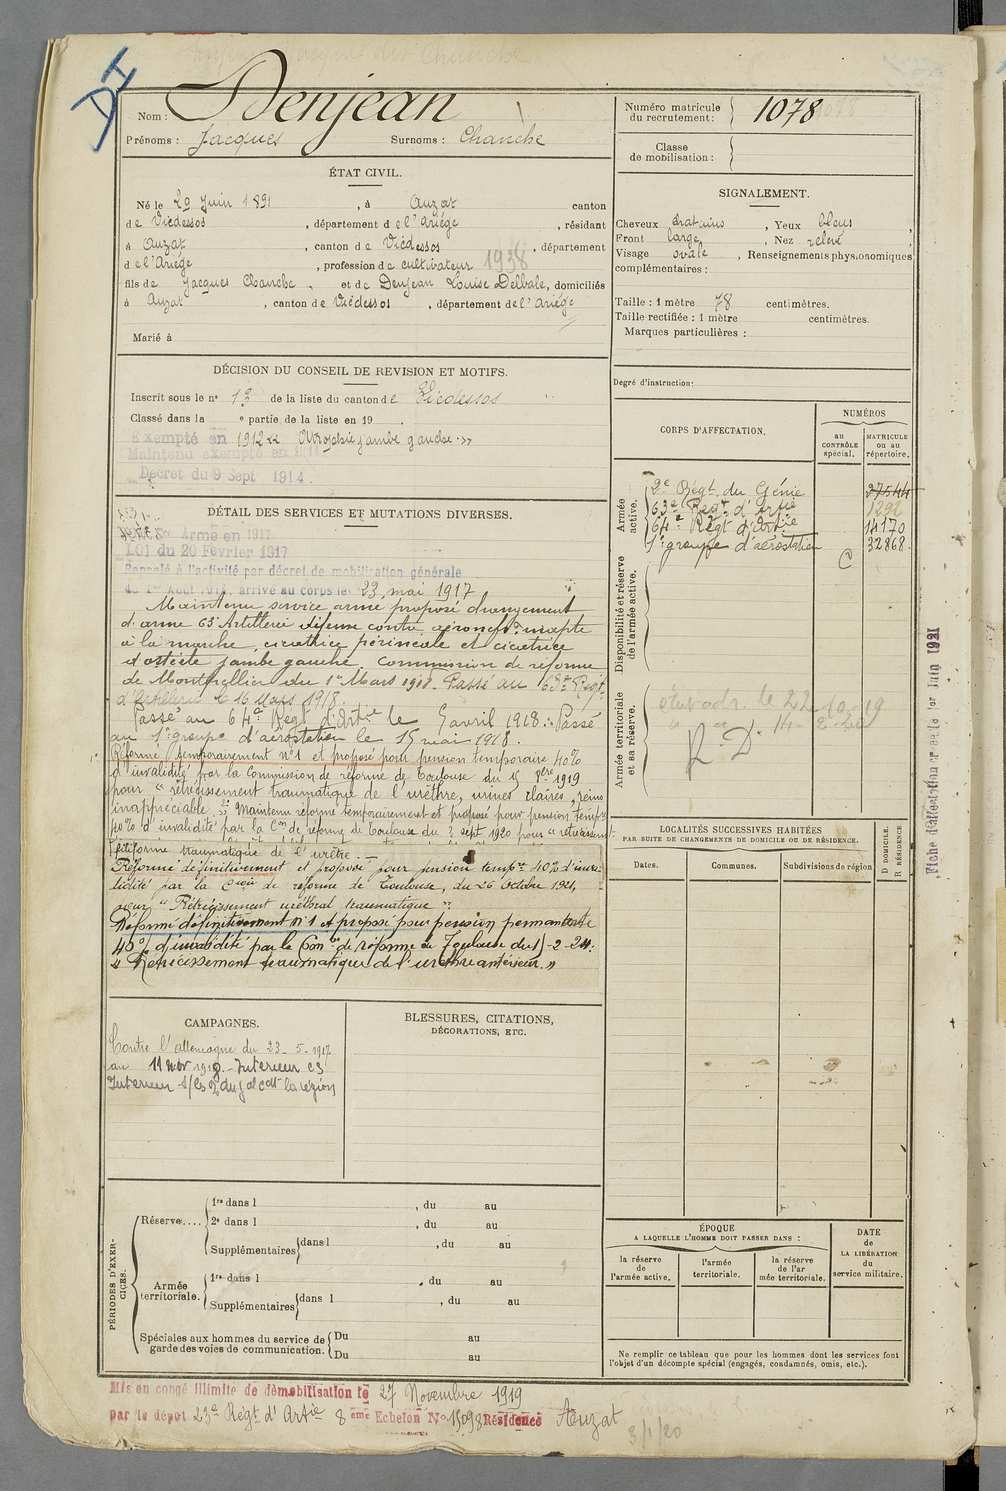 D I
Nom : Denjean
Prénoms : Jacques Surnoms : Chanche
Numéro matricule du recrutement : 1078
Classe de mobilisation :
ÉTAT CIVIL.
Né le 29 Juin 1891, à Auzat canton
de Vicdessos, département de l'Ariège, résidant
à Auzat, canton de Vicdessos, département
de l'Ariège, profession de cultivateur 1938
fils de Jacques Chanche et de Denjean Louise Delbale, domiciliés
à Auzat, canton de Vicdessos, département de l'Ariège
Marié à
SIGNALEMENT.
Cheveux chatains, Yeux bleus,
Front large, Nez relevé
Visage ovale, Renseignements physionomiques
complémentaires :
Taille : 1 mètre 78 centimètres.
Taille rectifiée : 1 mètre centimètres.
Marques particulières :
Degré d'instruction:
DÉCISION DU CONSEIL DE REVISION ET MOTIFS.
Inscrit sous le n° 13 de la liste du canton de Vicdessos
Classé dans la e partie de la liste en 19 .
Exempté en 1912 « Atrophie jambe gauche »
Maintenu exempté en 1914
Décret du 9 Sept 1914.
DÉTAIL DES SERVICES ET MUTATIONS DIVERSES.
Armé en 1917
LOI du 20 Février 1917
Rappelé à l'activité par décret de mobilisation générale
du 1er Août 1914, arrivé au corps le 23 mai 1917
Maintenu service armé proposé changement
d'arme 63e Artillerie défense contre aéronefs inapte
à la marche, cicatrice périnéale et cicatrice
d'ostéite jambe gauche. Commission de réforme
de Montpellier du 1er Mars 1918. Passé au 63e Regt
d'Artillerie le 16 Mars 1918.
Passé au 64e Régt d'Artie le 5 avril 1918. Passé
au 1er groupe d'aérostation le 15 mai 1918.
Réformé temporairement n°1 et proposé pour pension temporaire 40%
d'invalidité par la Commission de réforme de Toulouse du 1919
pour " rétrécissement traumatique de l'urèthre, urines claires, reins
inappréciable. Maintenu réformé temporairement et proposé pour pension tempre
40% d'invalidité par la Con de réforme de Toulouse du 3 sept 1920 pour " rétrécissemt
filiforme traumatique de l'urètre.
Réformé définitivement et proposé pour pension tempre 40% d'inva-
lidité par la Cion de réforme de Toulouse, du 26 Octobre 1921,
pour " Rétrécissement uréthral traumatique "
Réformé définitivement n°1 et proposé pour pension permanente
40% d'invalidité par la Com on de réforme de Toulouse du -2-24.
« Rétrécissement traumatique de l'urèthre antérieur. »
CORPS D'AFFECTATION.
NUMÉROS
au CONTRÔLE spécial.
MATRICULE ou au répertoire.
Armée active.
2e Régt du Génie 27544
63e Régt d'Artie 1292
64e Régt d'Artie 14170
1er groupe d'aérostation C 32868
Disponibilité et réserve de l'armée active.
Armée territoriale et sa réserve.
adr. le 22-10-19
R. D.
Fiche d'attestation créée le 1er Juin 1921
LOCALITÉS SUCCESSIVES HABITÉES
PAR SUITE DE CHANGEMENTS DE DOMICILE OU DE RÉSIDENCE.
Dates. Communes. Subdivisions de région
D DOMICILE. R RÉSIDENCE
CAMPAGNES.
Contre l'allemagne du 23-5-1917
au 11 nov 1918 - Intérieur CS
BLESSURES, CITATIONS,
DÉCORATIONS, ETC.
PÉRIODES D'EXERCICES.
Réserve.... 1re dans l , du au
2e dans l , du au
Supplémentaires dans l , du au
Armée territoriale. 1re dans l , du au
Supplémentaires dans l , du au
Spéciales aux hommes du service de garde des voies de communication. Du au
Du au
ÉPOQUE
A LAQUELLE L'HOMME DOIT PASSER DANS :
la réserve de l'armée active.
l'armée territoriale.
la réserve de l'armée territoriale.
DATE de LA LIBÉRATION du service militaire.
Ne remplir ce tableau que pour les hommes dont les services font
l'objet d'un décompte spécial (engagés, condamnés, omis, etc.).
Mis en congé illimité de démobilisation le 27 Novembre 1919
par le dépôt 23e Régt d'Artie 8 ème Echelon No 15098 Résidence Auzat
3/1/20